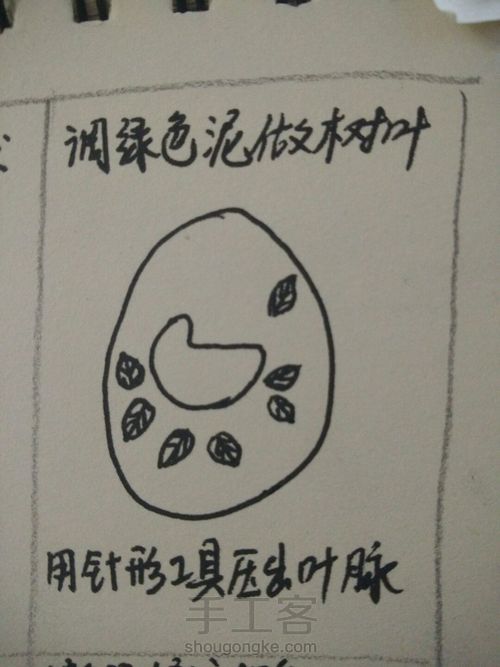 调绿色泥做树叶
用针形工具压出叶脉
手工客
shougongke.com